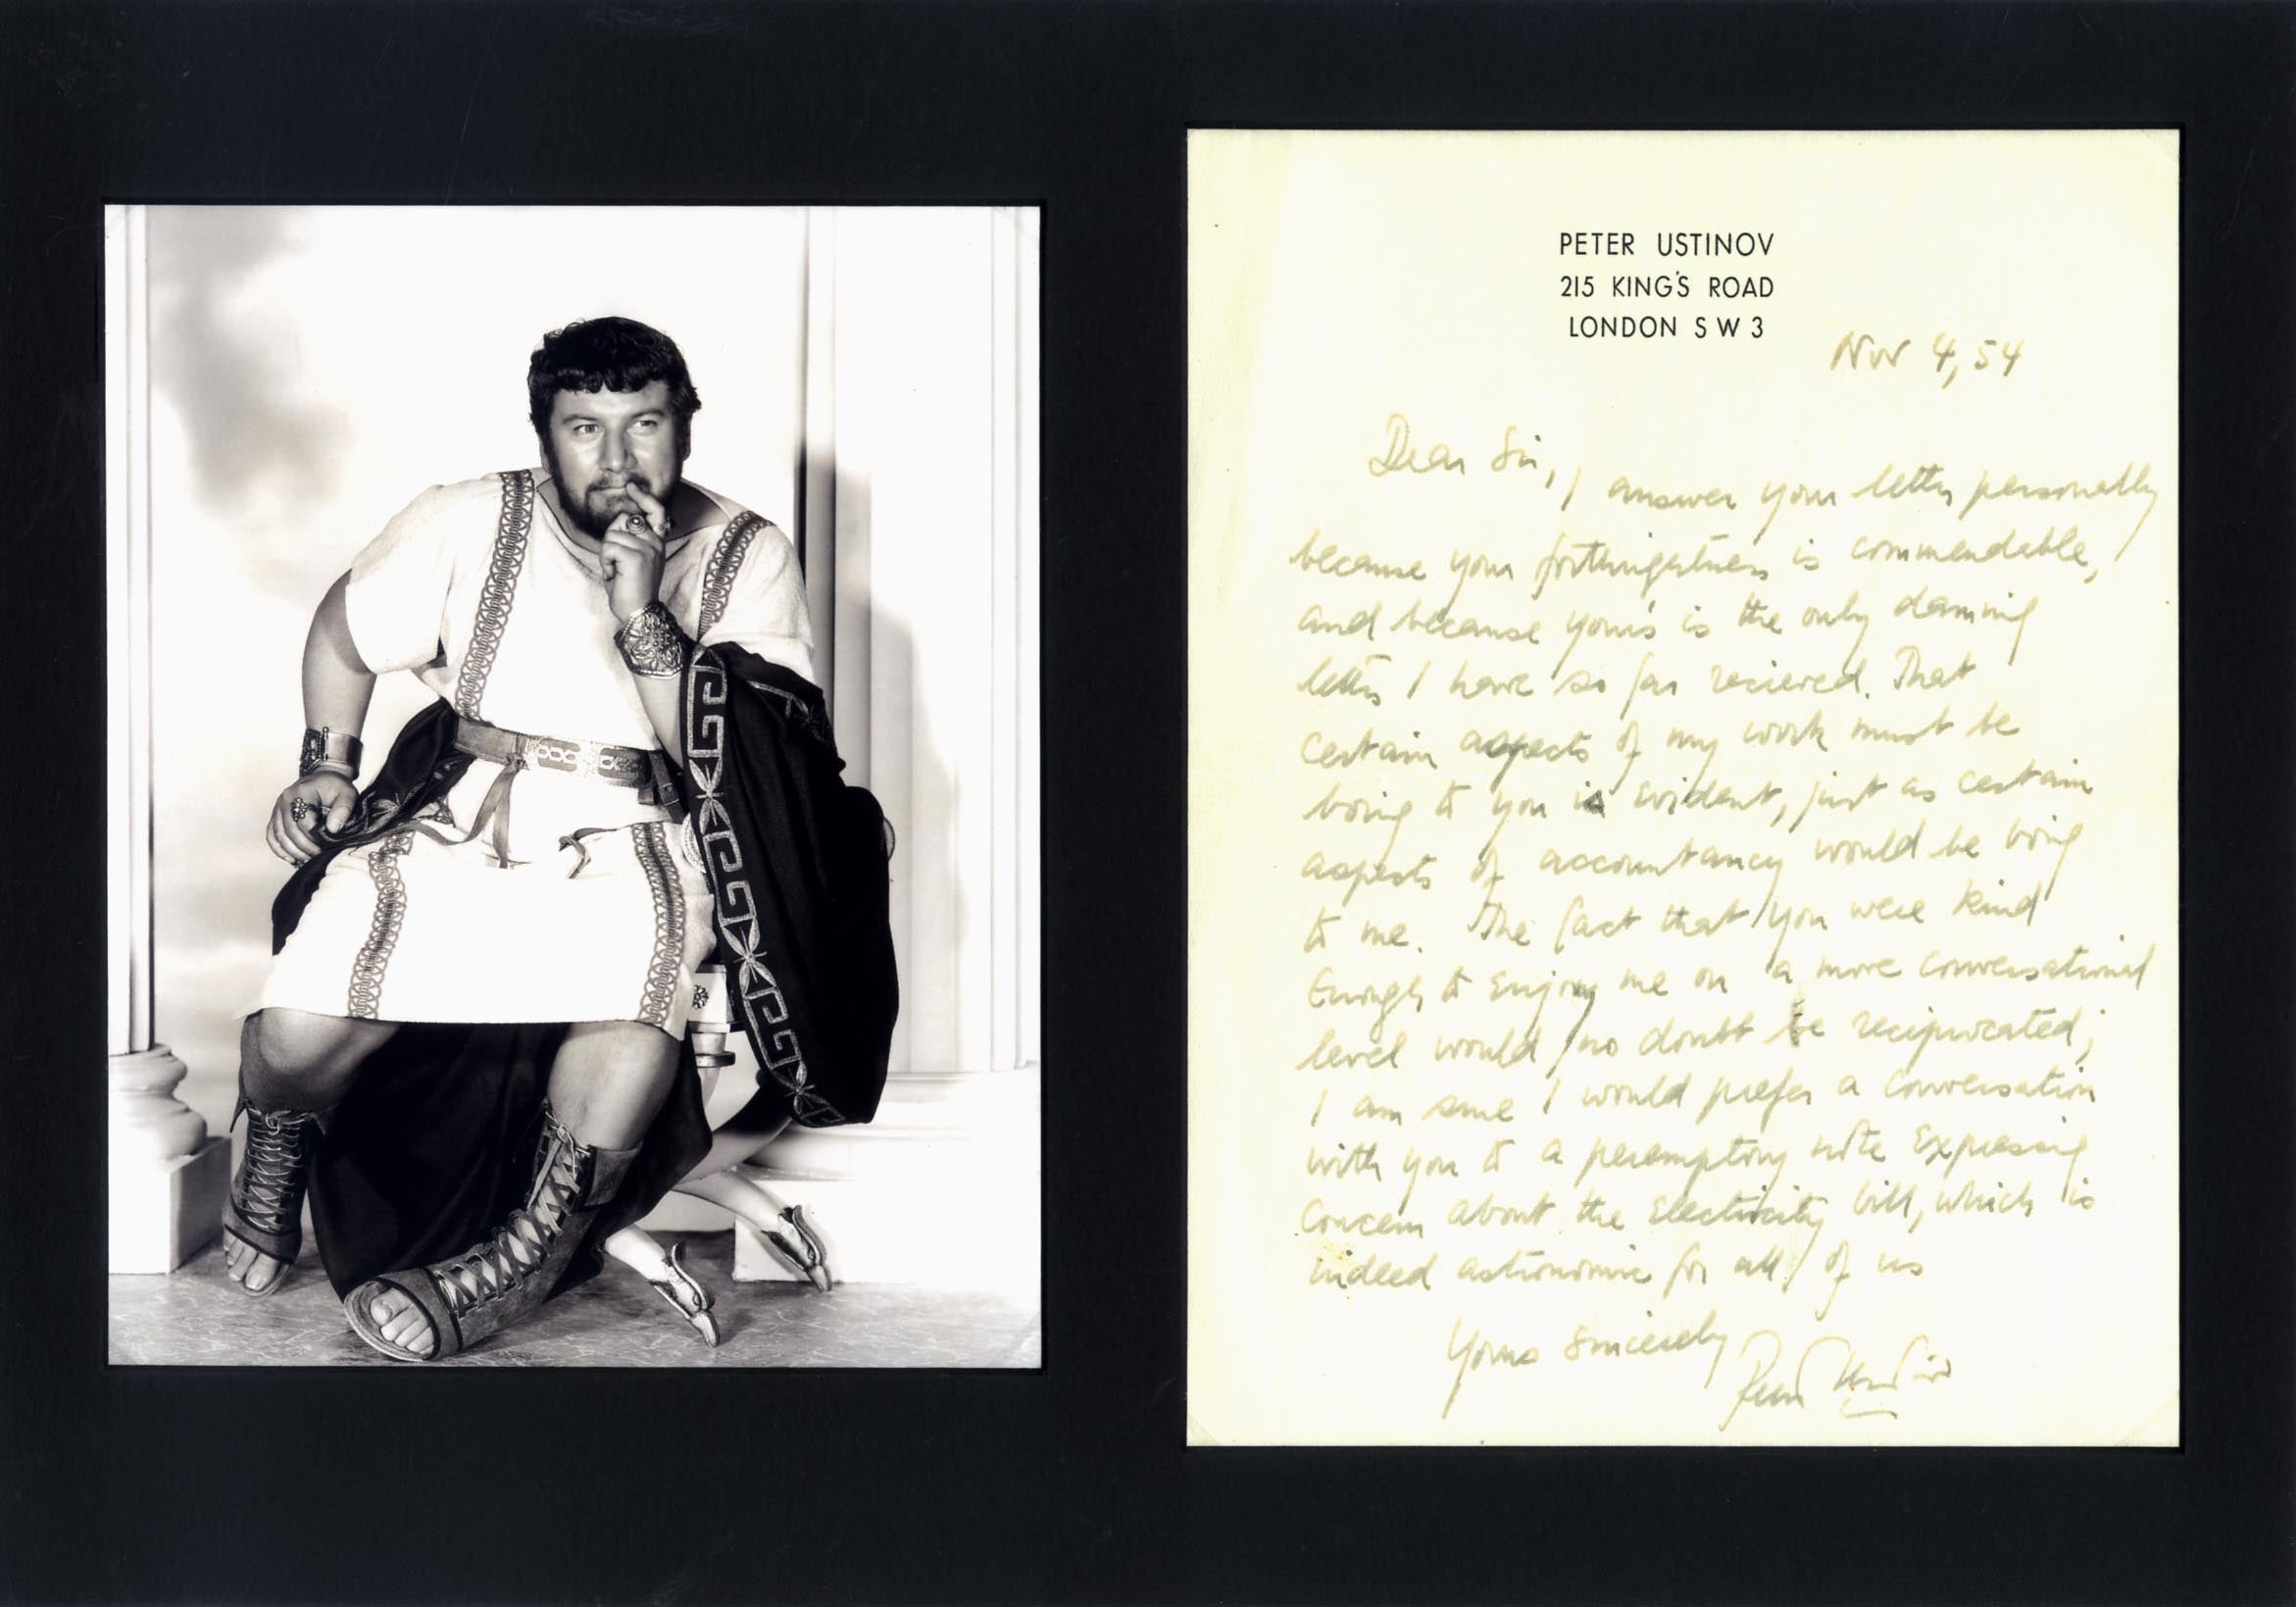 PETER USTINOV
215 KING'S ROAD
LONDON S W 3
Nov 4, 54
Dear Sir,
I answer your letter personally
because your forthrightness is commendable,
and because your's is the only damning
letter I have so far recieved. That
certain aspects of my work must be
boring to you is evident, just as certain
aspects of accountancy would be boring
to me. The fact that you were kind
enough to enjoy me on a more conversational
level would no doubt be reciprocated;
I am sure I would prefer a conversation
with you to a peremptory note expressing
concern about the electricity bill, which is
indeed astronomic for all of us
Yours sincerely
Peter Ustinov